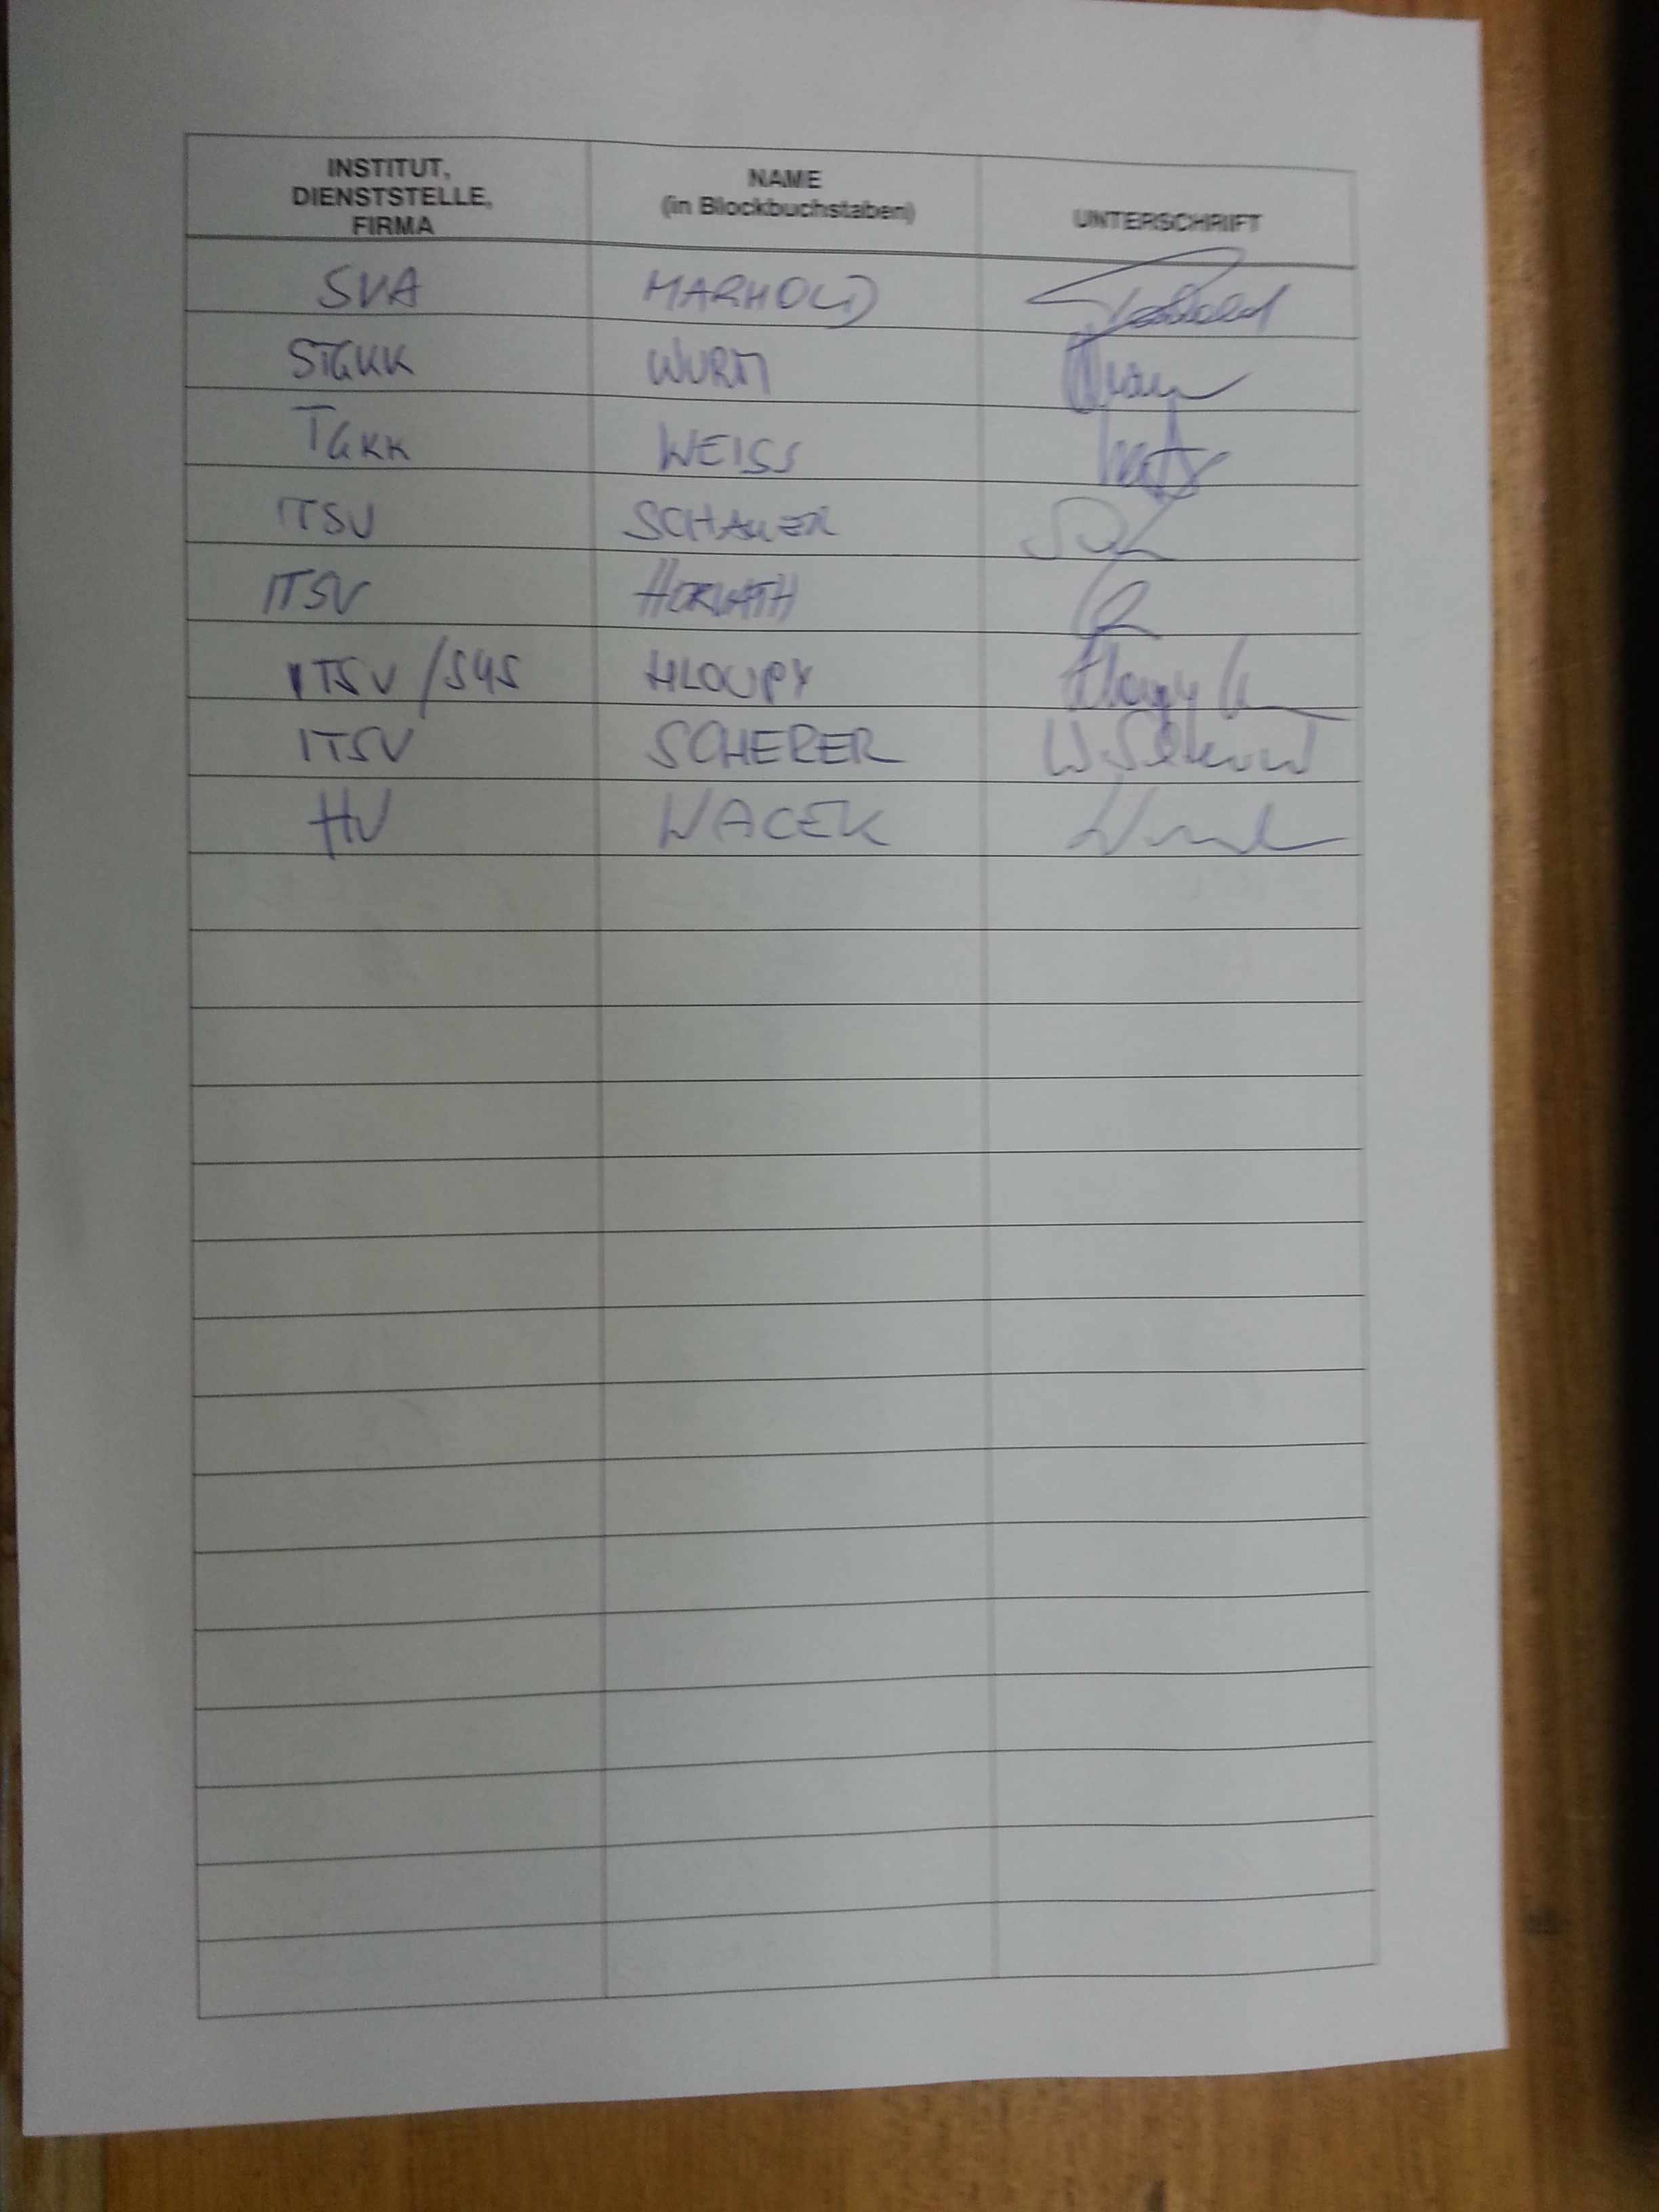 INSTITUT,
DIENSTSTELLE,
FIRMA
NAME
(in Blockbuchstaben)
UNTERSCHRIFT
SVA MARHOLD
STGKK WURM
TGKK WEISS
ITSV SCHAUER
ITSV HORVATH
ITSV/SYS HLOUPY
ITSV SCHERER
HV WACEK